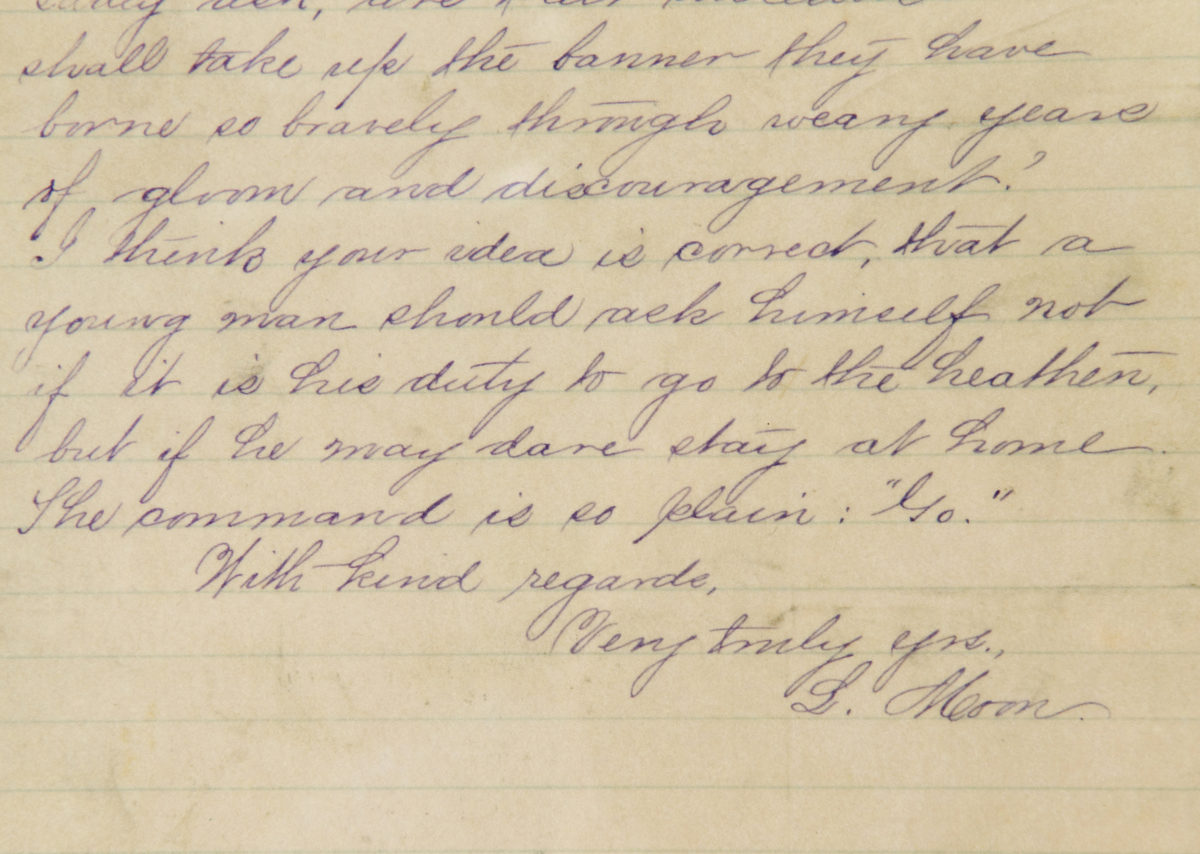 shall take up the banner they have
borne so bravely through weary years
of gloom and discouragement?
I think your idea is correct, that a
young man should ask himself not
if it is his duty to go to the heathen,
but if he may dare stay at home.
The command is so plain: "Go."
With kind regards,
Very truly yrs.,
L. Moon.